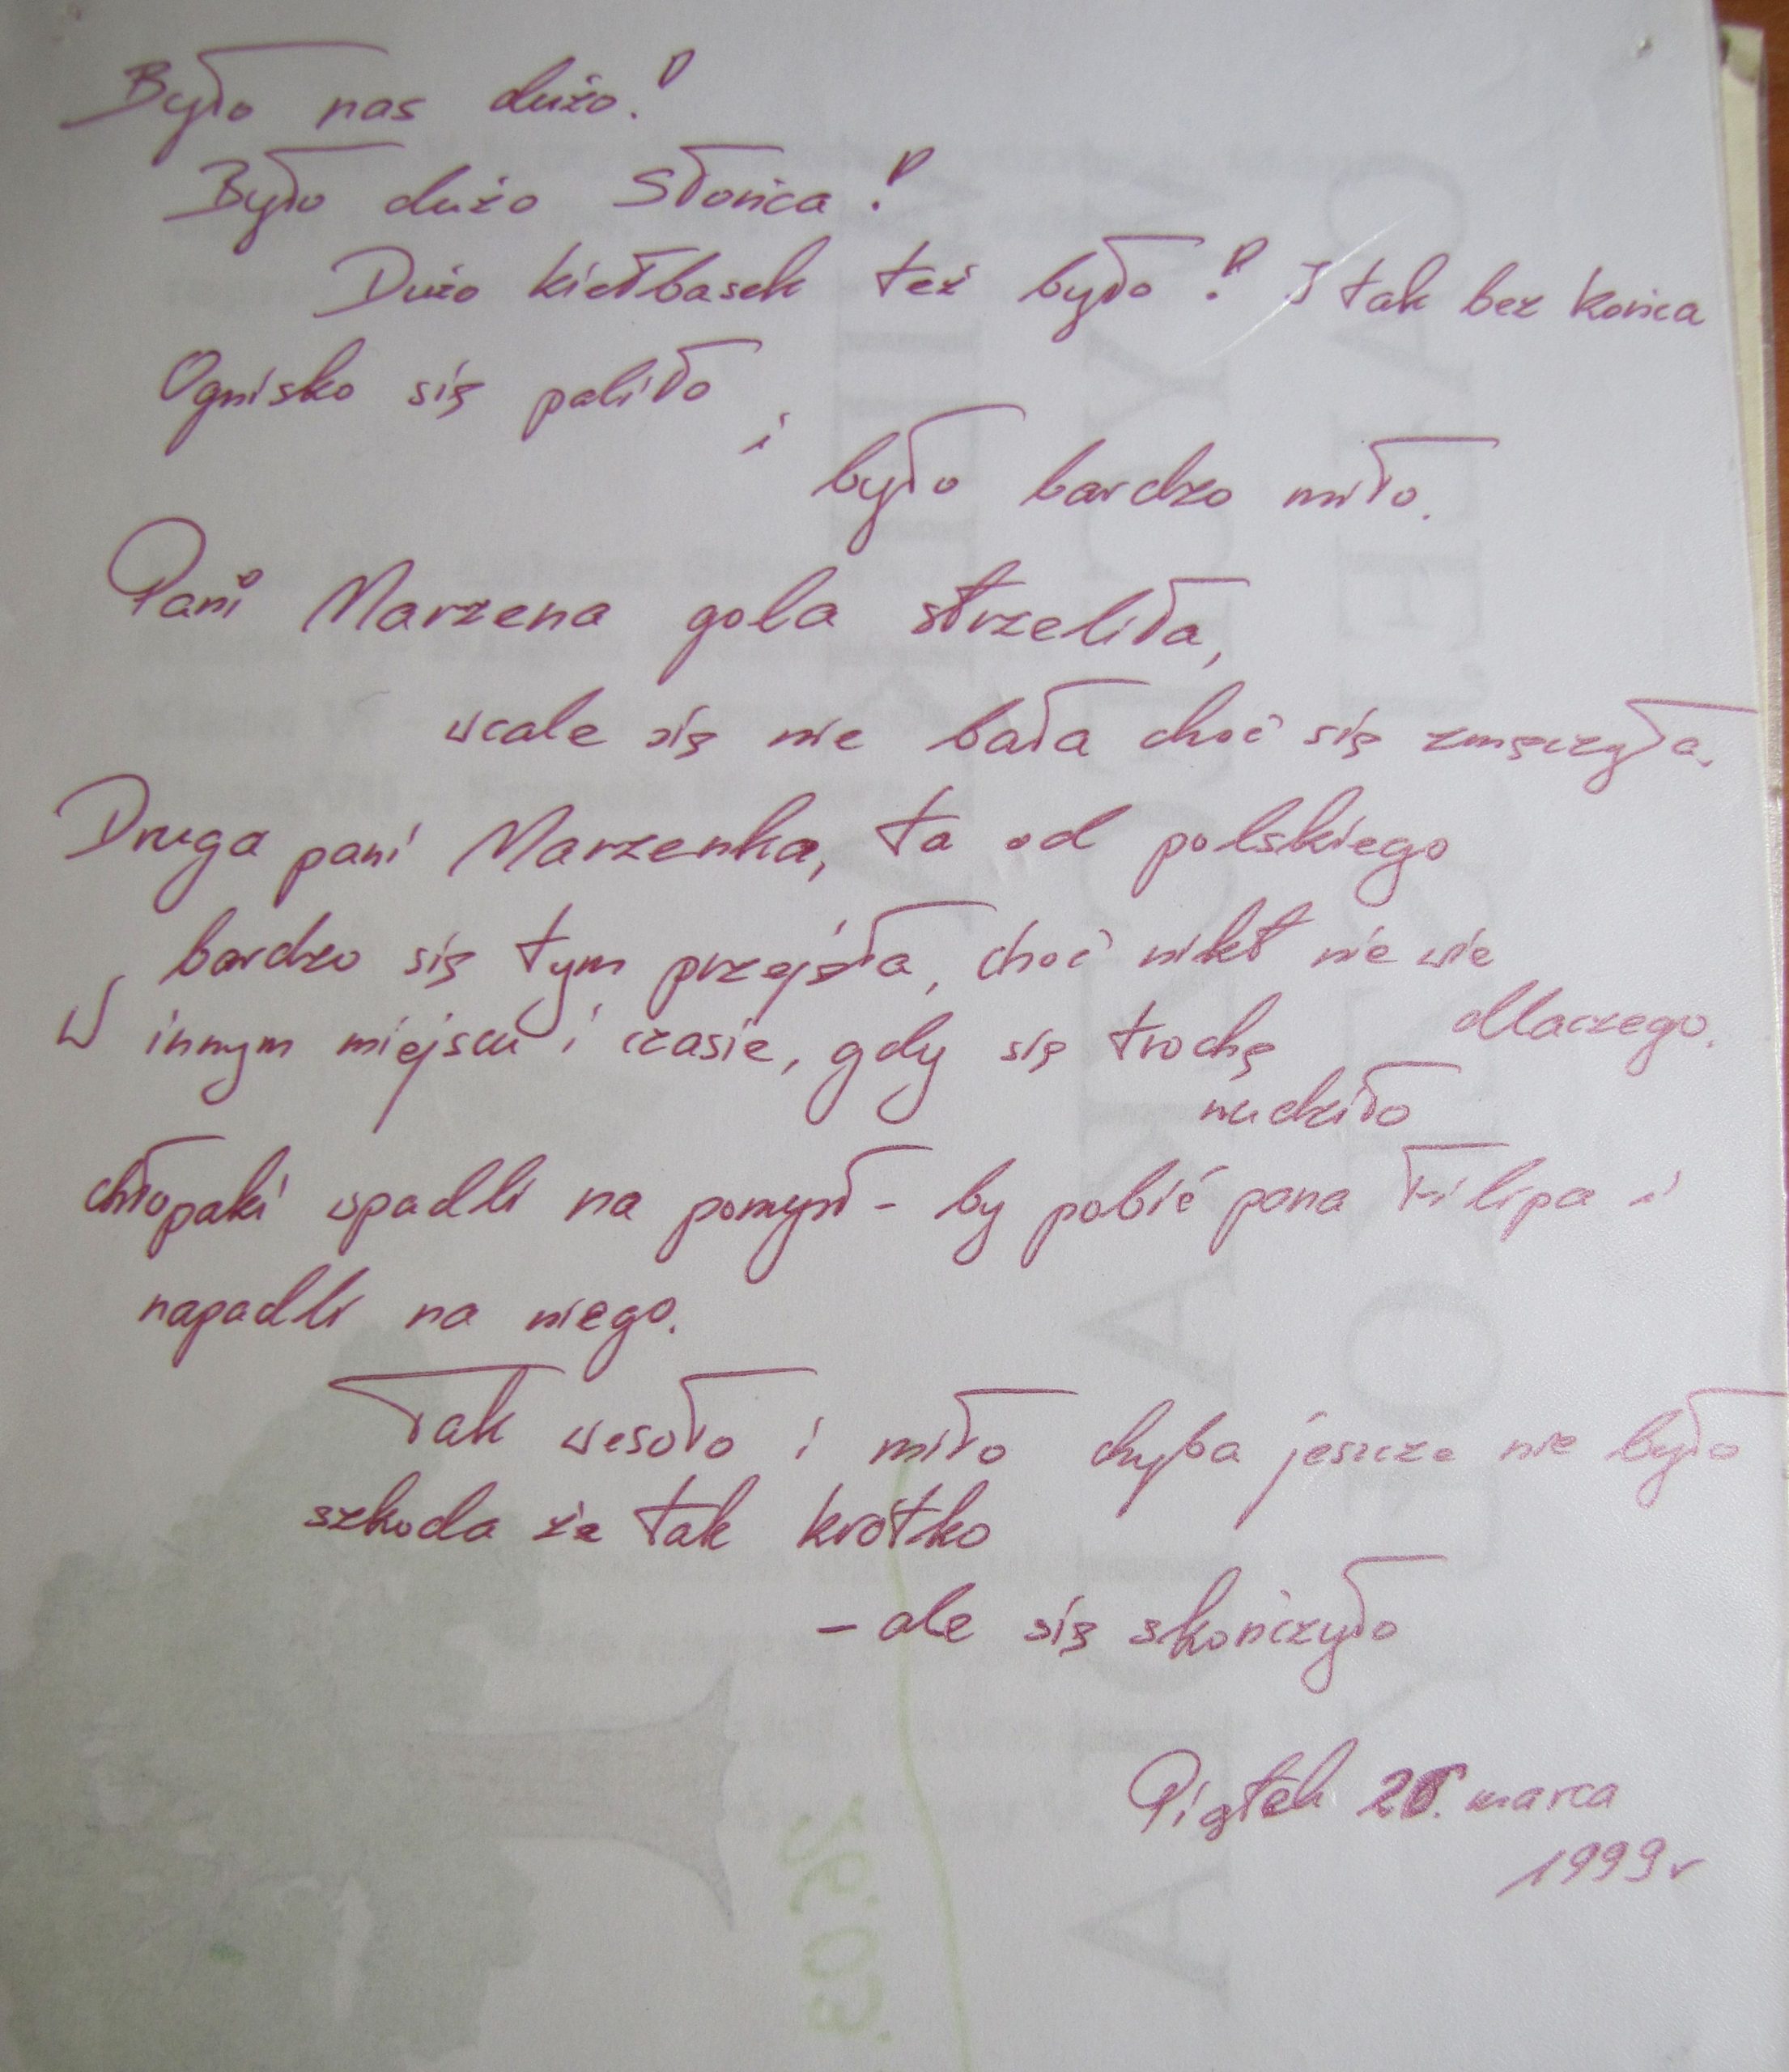 Było nas dużo!
Było dużo Słońca!
Dużo kiełbasek też było! I tak bez końca
Ognisko się paliło
i
było bardzo miło.
Pani Marzena gola strzeliła,
wcale się nie bała choć się zmęczyła.
Druga pani Marzenka, ta od polskiego
bardzo się tym przejęła, choć nikt nie wie
dlaczego.
W innym miejscu i czasie, gdy się trochę
nudziło
chłopaki wpadli na pomysł - by pobić pana Filipa i
napadli na niego.
Tak wesoło i miło chyba jeszcze nie było
szkoda że tak krótko
- ale się skończyło
Piątek 26. marca
1999r